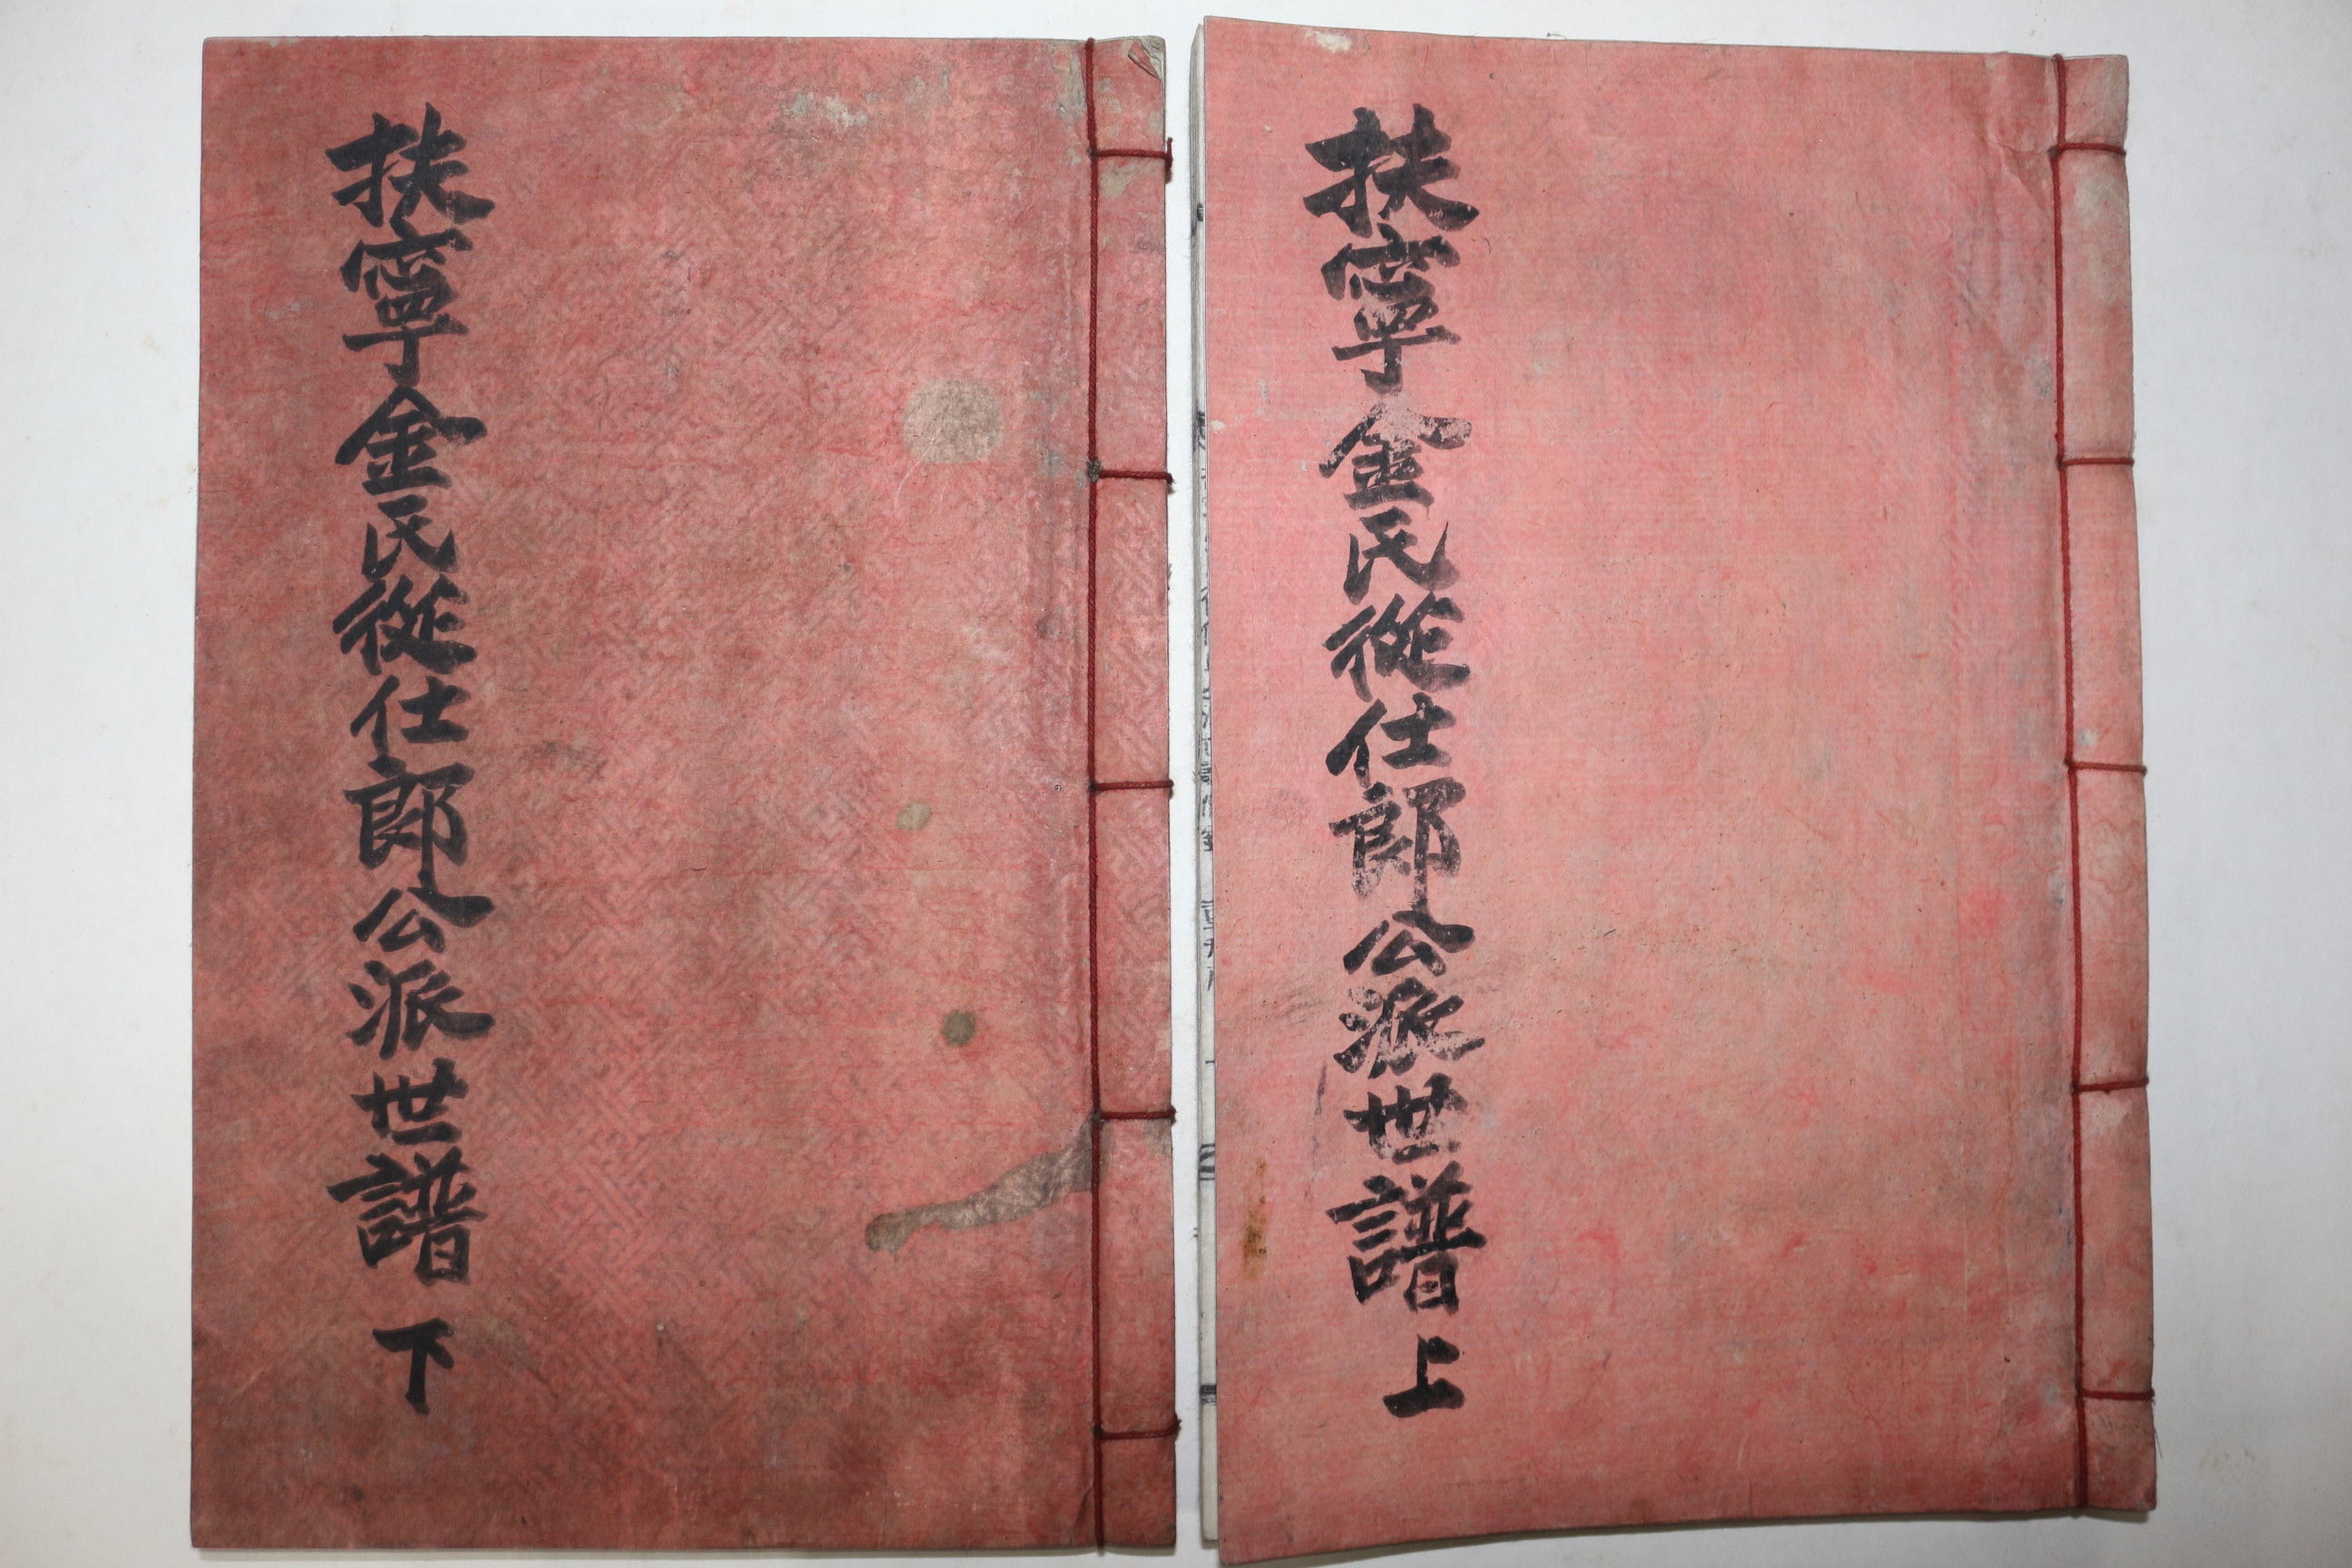 扶寧金氏從仕郎公派世譜 上
扶寧金氏從仕郎公派世譜 下